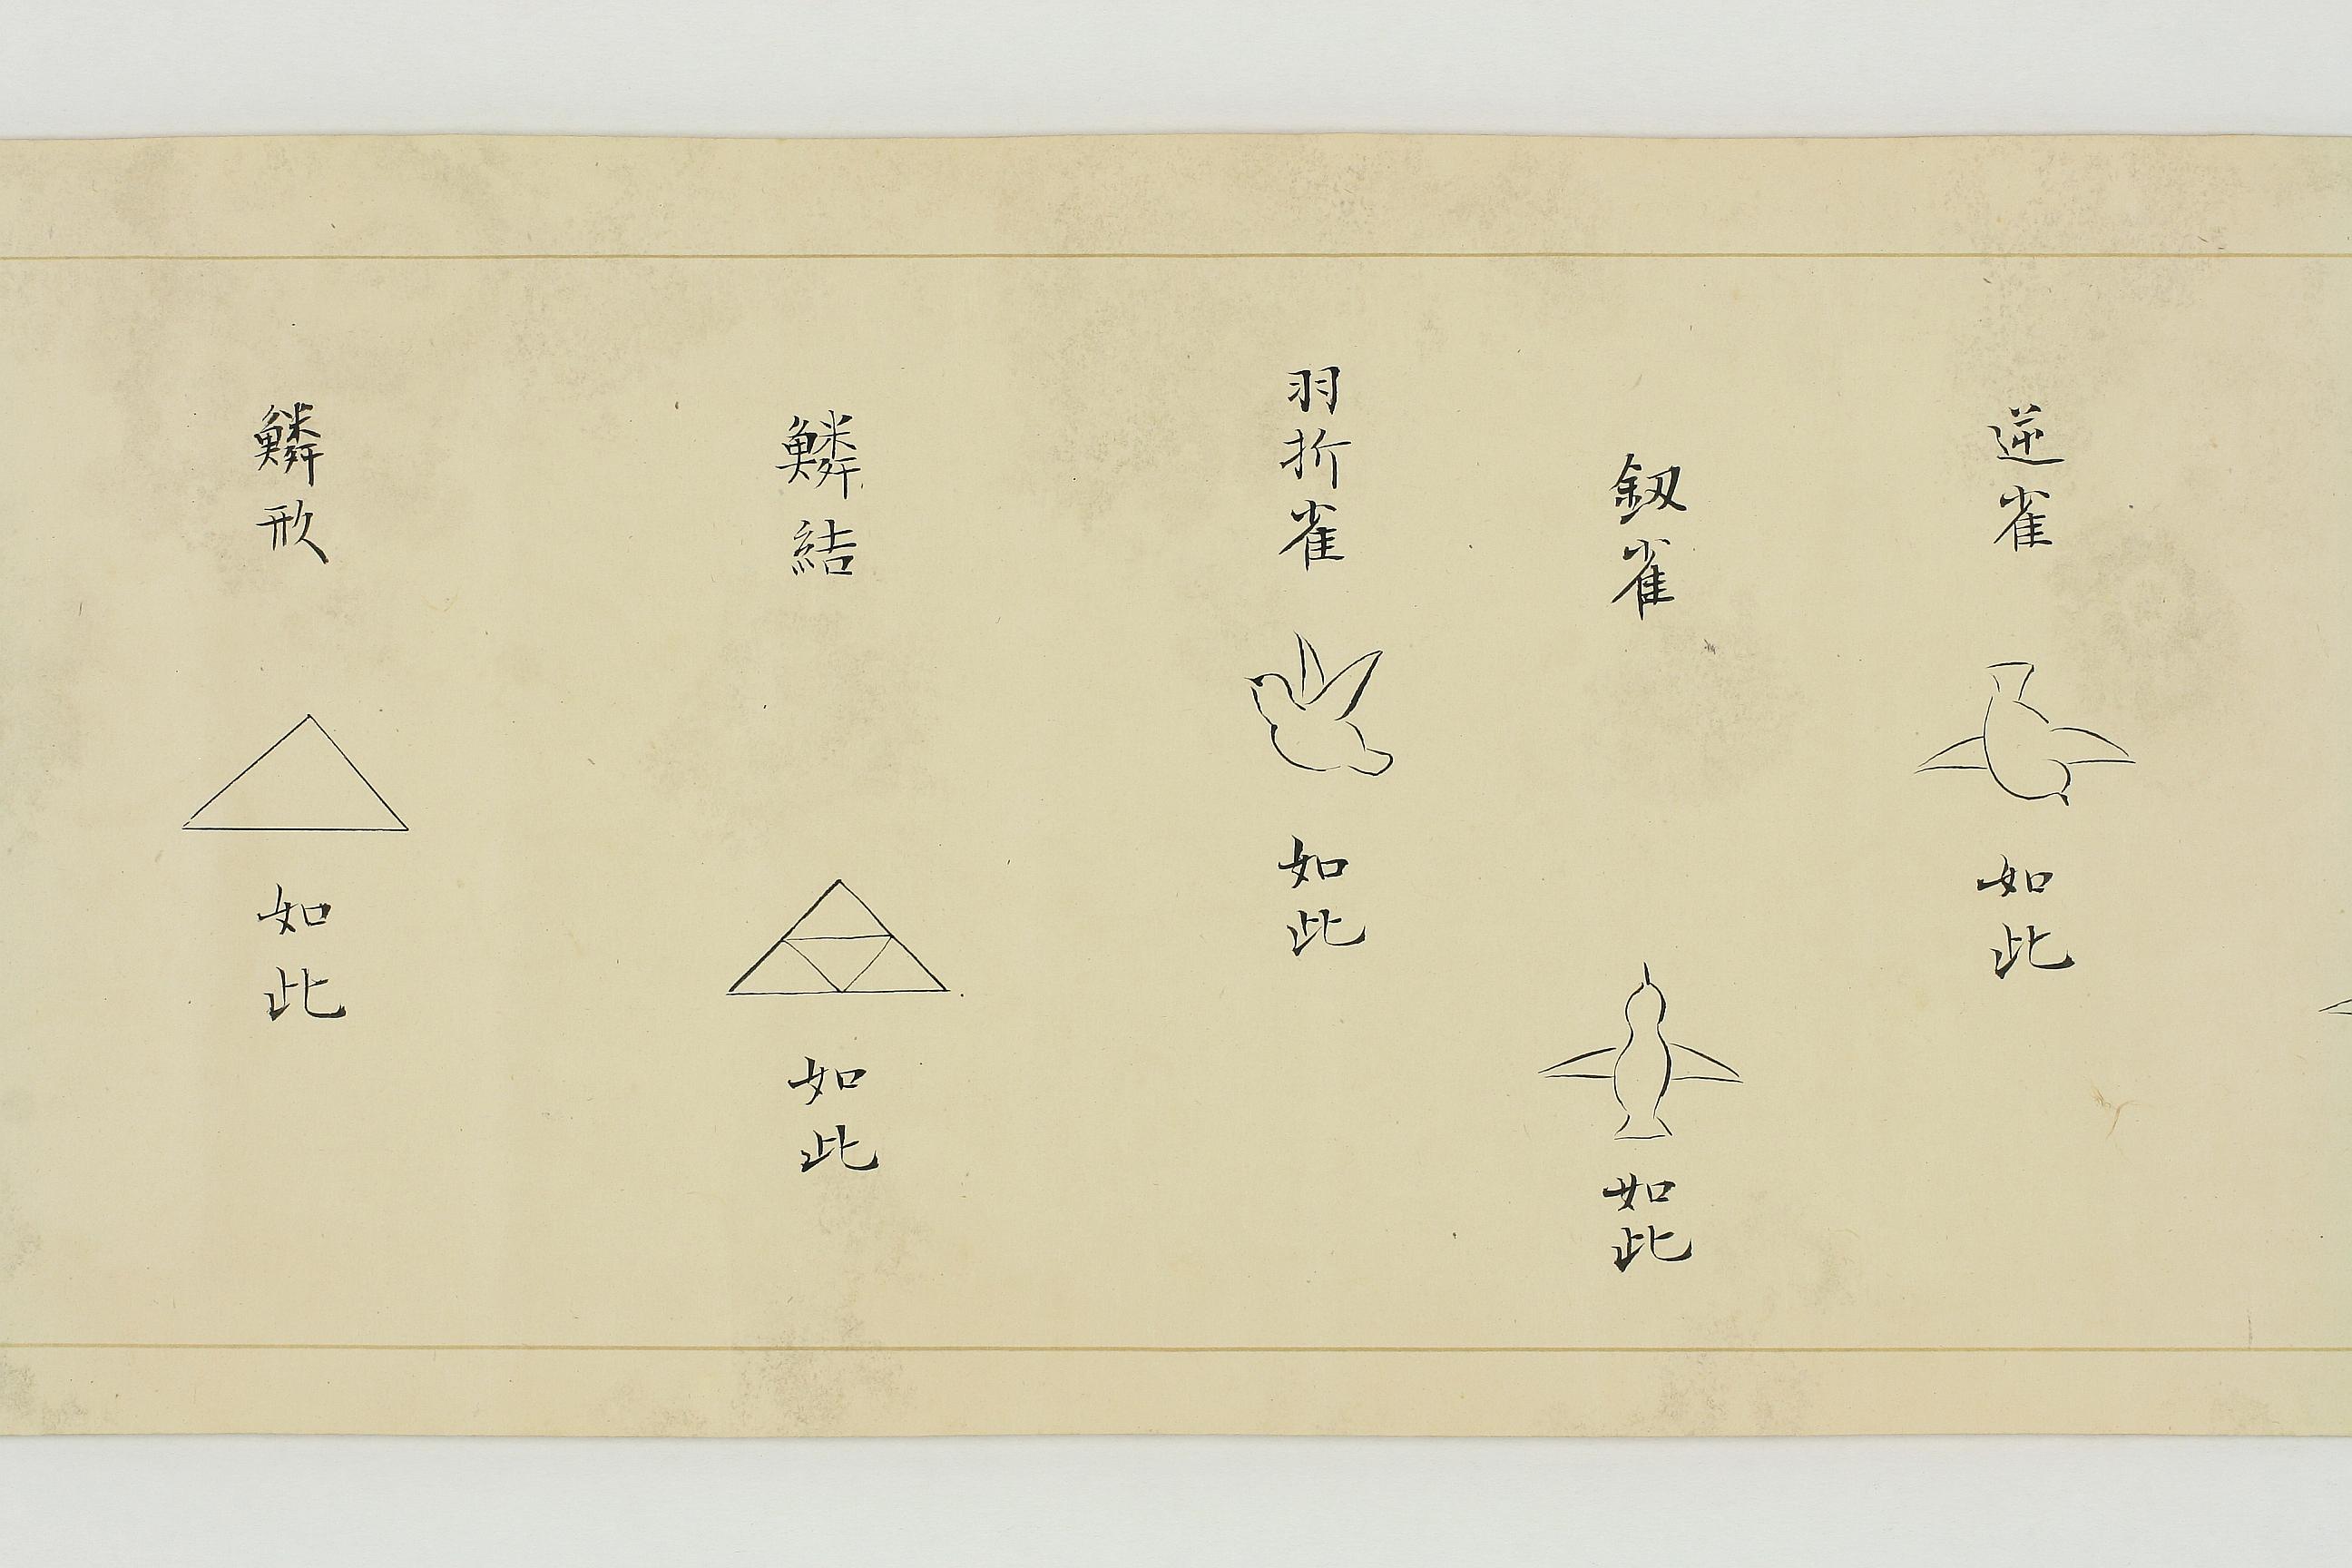 逆雀
如此
釼雀
如此
羽折雀
如此
鱗結
如此
鱗形
如此